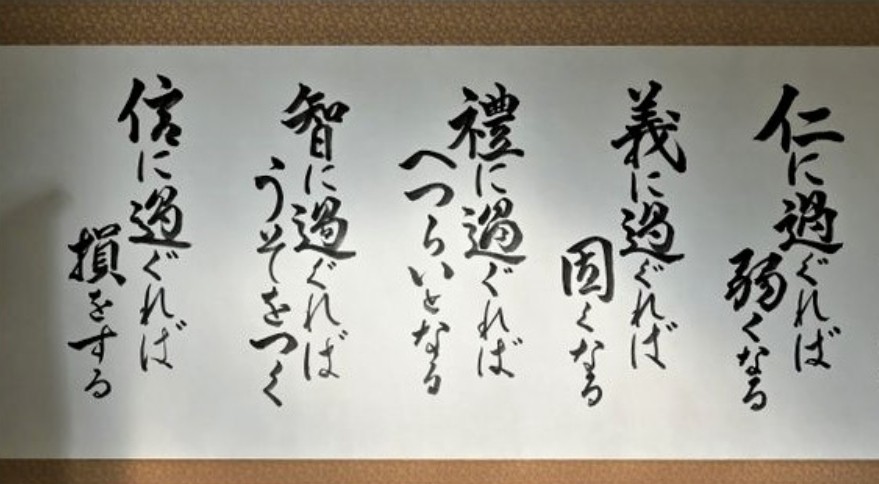 仁に過ぐれば
弱くなる
義に過ぐれば
固くなる
禮に過ぐれば
へつらいとなる
智に過ぐれば
うそをつく
信に過ぐれば
損をする